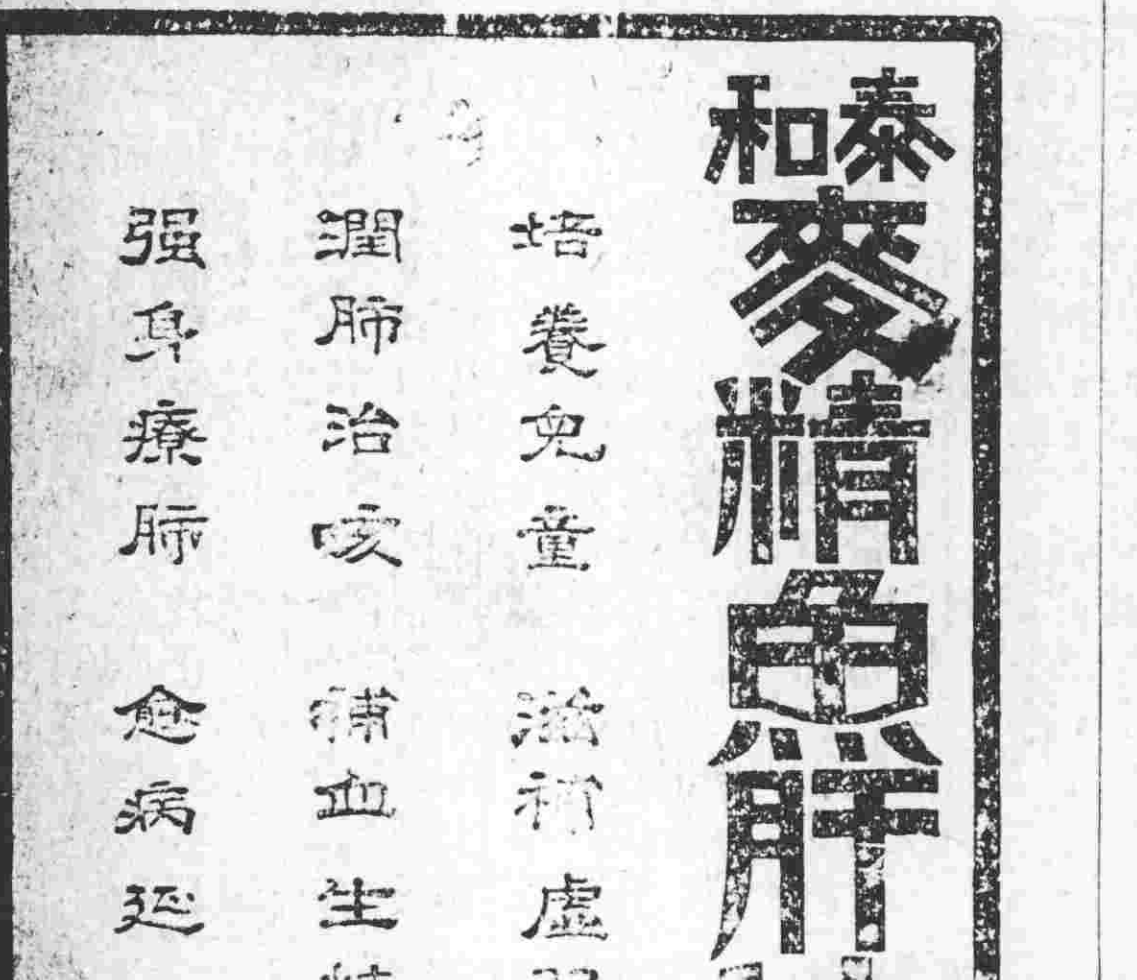 泰和
麥精魚肝
培養兒童 滋補虛
潤肺治咳 補血生
强身療肺 愈病延